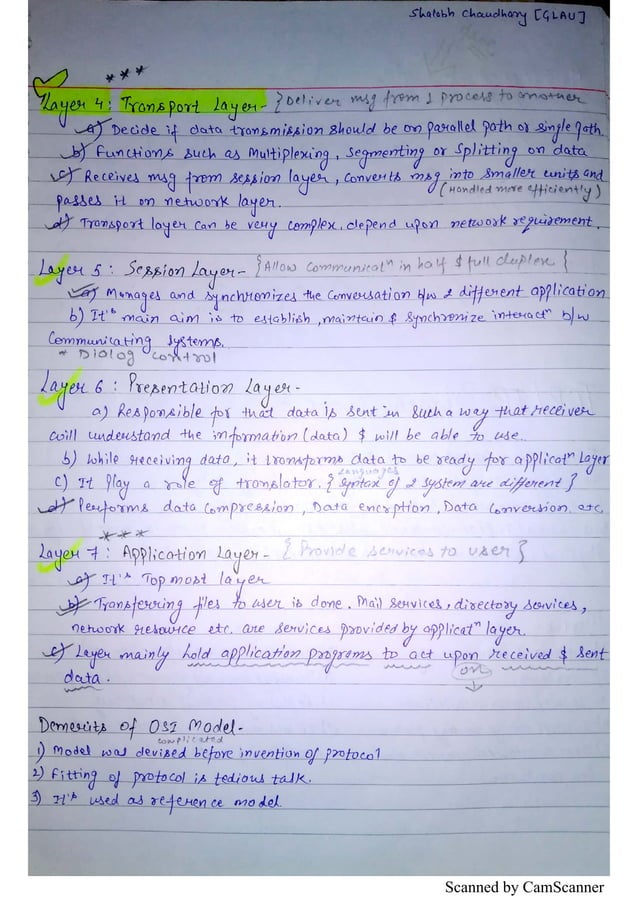 Shalabh Chaudhary [GLAU]
***
Layer 4: Transport Layer - {Deliver msg from 1 process to another
a) Decide if data transmission should be on parallel path or single path.
b) Functions such as Multiplexing, Segmenting or Splitting on data
c) Receives msg from session layer, converts msg into smaller units and
passes it on network layer. (Handled more efficiently)
d) Transport layer can be very complex, depend upon network requirement.
Layer 5: Session Layer - {Allow communicatⁿ in half & full duplex}
a) Manages and synchronizes the conversation b/w 2 different application
b) It's main aim is to establish, maintain & synchronize interactⁿ b/w
communicating systems.
* Dialog control
Layer 6: Presentation Layer -
a) Responsible for that data is sent in such a way that receiver
will understand the information (data) & will be able to use.
b) While receiving data, it transforms data to be ready for applicatⁿ layer
languages
c) It play a role of translator. {Syntax of 2 system are different}
d) Performs data compression, Data encryption, Data conversion, etc
***
Layer 7: Application Layer - {Provide services to user}
a) It's Top most layer
b) Transferring files to user is done. Mail services, directory services,
network resource etc. are services provided by applicatⁿ layer.
c) Layer mainly hold application programs to act upon received & sent
data. on
Demerits of OSI Model -
complicated
1) Model was devised before invention of protocol
2) Fitting of protocol is tedious talk.
3) It's used as reference model
Scanned by CamScanner